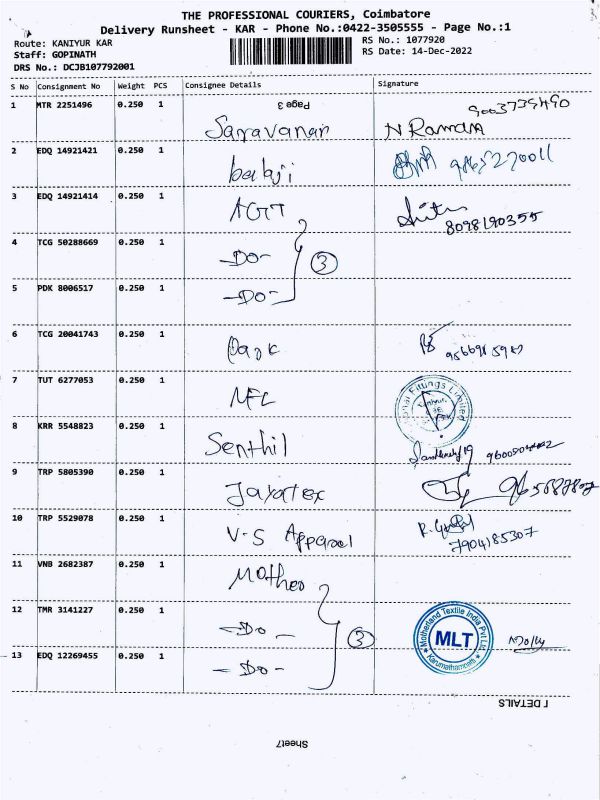 THE PROFESSIONAL COURIERS, Coimbatore
Delivery Runsheet - KAR - Phone No.:0422-3505555 - Page No.:1
Route: KANIYUR KAR
RS No.: 1077920
Staff: GOPINATH
RS Date: 14-Dec-2022
DRS No.: DCJB107792001
S No Consignment No Weight PCS Consignee Details Signature
1 MTR 2251496 0.250 1 Page 3
Saravanan N Raman 9003739490
2 EDQ 14921421 0.250 1
balaji 9865270011
3 EDQ 14921414 0.250 1
AGT 8098190355
4 TCG 50288669 0.250 1
-Do- 3
5 PDK 8006517 0.250 1
-Do-
6 TCG 20041743 0.250 1
7 TUT 6277053 0.250 1
NFC Fittings Limited
8 KRR 5548823 0.250 1
Senthil
9 TRP 5805390 0.250 1
Jayatex
10 TRP 5529078 0.250 1
V.S Apparal 7904185307
11 VNB 2682387 0.250 1
Mother
12 TMR 3141227 0.250 1
-Do- 3 Motherland Textile India Pvt Ltd. MLT Karumathampatti
13 EDQ 12269455 0.250 1
-Do-
L DETAILS
Sheet7